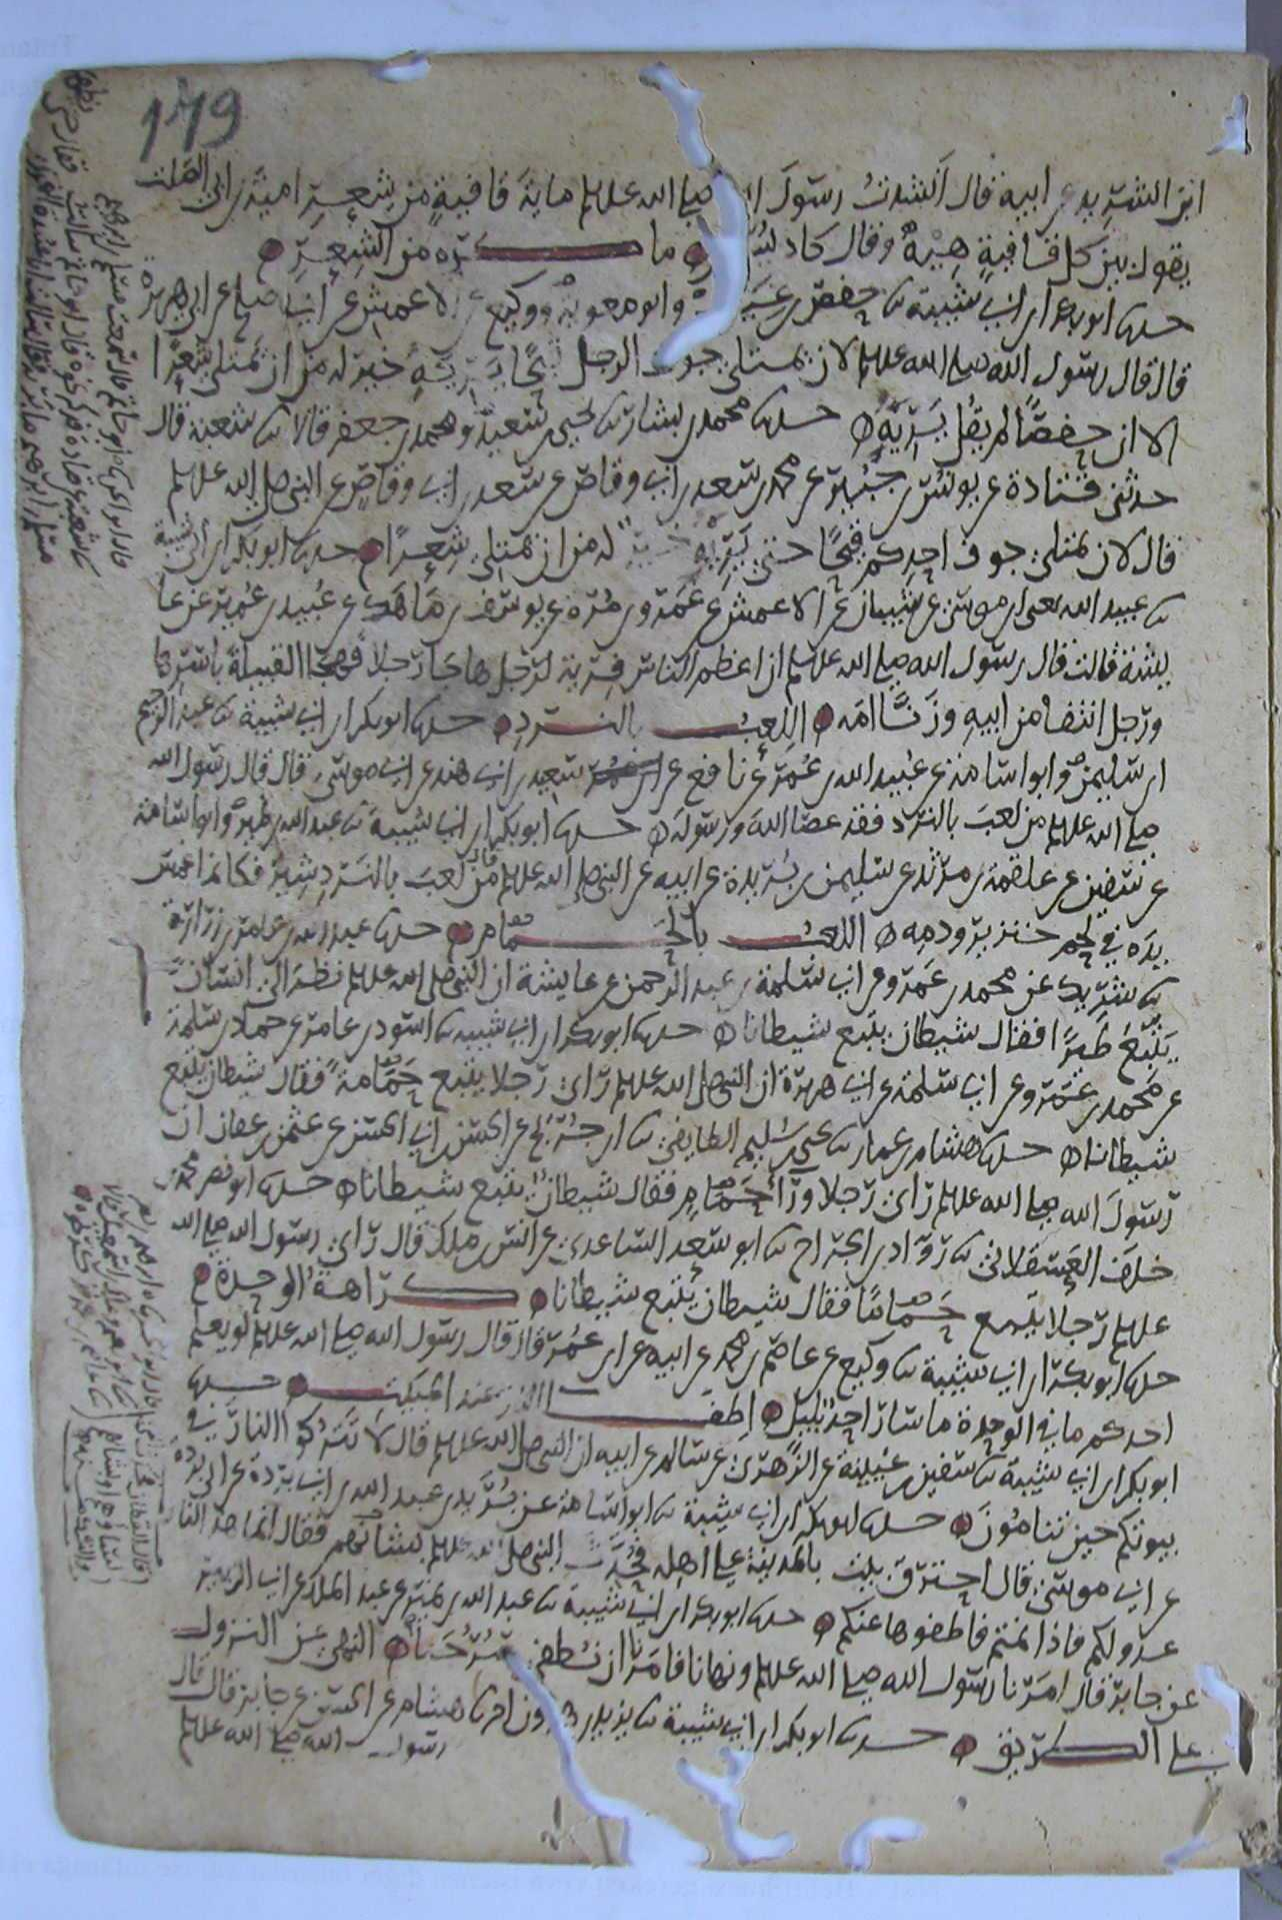 179
ابن الشريد عن ابيه قال انشدت رسول الله صلى الله عليه وسلم ماية قافية من شعر امية بن ابي الصلت
يقول بين كل قافية هيه وقال كاد ان يسلم ما كره من الشعر
حدثنا ابو بكر ابن ابي شيبة ثنا حفص بن غياث وابو معوية ووكيع عن الاعمش عن ابي صالح عن ابي هريرة
قال قال رسول الله صلى الله عليه وسلم لان يمتلئ جوف الرجل قيحا يريه خير له من ان يمتلئ شعرا
الا ان حفصا لم يقل يريه حدثنا محمد بن بشار ثنا يحيى بن سعيد ومحمد بن جعفر قالا ثنا شعبة قال
حدثني قتادة عن يونس بن جبير عن محمد بن سعد بن ابي وقاص عن سعد بن ابي وقاص عن النبي صلى الله عليه وسلم
قال لان يمتلئ جوف احدكم قيحا حتى يريه خير له من ان يمتلئ شعرا حدثنا ابو بكر ابن ابي شيبة
ثنا عبيد الله يعني ابن موسى عن شيبان عن الاعمش عن عمرو بن مرة عن يوسف بن ماهك عن عبيد بن عمير عن عا
يشة قالت قال رسول الله صلى الله عليه وسلم ان اعظم الناس فرية لرجل هاجا رجلا فهجا القبيلة باسرها
ورجل انتفا من ابيه وزنا امه اللعب بالنرد حدثنا ابو بكر ابن ابي شيبة ثنا عبد الرحيم
ابن سليمن وابو اسامة عن عبيد الله بن عمر عن نافع عن سعيد بن ابي هند عن ابي موسى قال قال رسول الله
صلى الله عليه وسلم من لعب بالنرد فقد عصا الله ورسوله حدثنا ابو بكر ابن ابي شيبة ثنا عبد الله بن نمير وابو اسامة
عن سفين عن علقمة بن مرثد عن سليمن بن بريدة عن ابيه عن النبي صلى الله عليه وسلم قال من لعب بالنردشير فكانما غمس
يده في لحم خنزير ودمه اللعب بالحمام حدثنا عبد الله بن عامر بن زرارة
ثنا شريك عن محمد بن عمرو عن ابي سلمة بن عبد الرحمن عن عايشة ان النبي صلى الله عليه وسلم نظر الى انسان
يتبع طيرا فقال شيطان يتبع شيطانا حدثنا ابو بكر ابن ابي شيبة ثنا اسود بن عامر عن حماد بن سلمة
عن محمد بن عمرو عن ابي سلمة عن ابي هريرة ان النبي صلى الله عليه وسلم راى رجلا يتبع حمامة فقال شيطان يتبع
شيطانا حدثنا هشام بن عمار ثنا يحيى بن سليم الطايفي ثنا ابن جريج عن الحسن بن ابي الحسن عن عثمن بن عفان ان
رسول الله صلى الله عليه وسلم راى رجلا ورا حمام فقال شيطان يتبع شيطانا حدثنا ابو نصر محمد بن
خلف العسقلاني ثنا رواد بن الجراح ثنا ابو سعد الساعدي عن انس بن ملك قال راى رسول الله صلى الله
عليه وسلم رجلا يتبع حماما فقال شيطان يتبع شيطانا كراهة الوحدة
حدثنا ابو بكر ابن ابي شيبة ثنا وكيع عن عاصم بن محمد عن ابيه عن ابن عمر قال قال رسول الله صلى الله عليه وسلم لو يعلم
احدكم ما في الوحدة ما سار احد بليل اطفا النار عند المبيت حدثنا
ابو بكر ابن ابي شيبة ثنا سفين بن عيينة عن الزهري عن سالم عن ابيه ان النبي صلى الله عليه وسلم قال لا تتركوا النار في
بيوتكم حين تنامون حدثنا ابو بكر ابن ابي شيبة ثنا ابو اسامة عن بريد بن عبد الله بن ابي بردة عن ابي بردة
عن ابي موسى قال احترق بيت بالمدينة على اهله فحدث النبي صلى الله عليه وسلم بشانهم فقال انما هذه النار
عدو لكم فاذا نمتم فاطفوها عنكم حدثنا ابو بكر ابن ابي شيبة ثنا عبد الله بن نمير عن عبد الملك عن ابي الزبير
عن جابر قال امرنا رسول الله صلى الله عليه وسلم ونهانا فامرنا ان نطفئ سرجنا النهي عن النزول
على الطريق حدثنا ابو بكر ابن ابي شيبة ثنا يزيد بن هرون اخبرنا هشام عن الحسن عن جابر قال قال
رسول الله صلى الله عليه وسلم